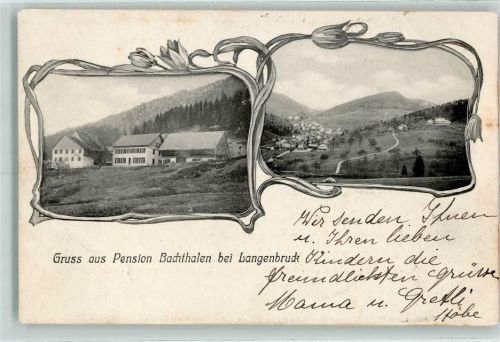 Gruss aus Pension Bachthalen bei Langenbruck
Wir senden Ihnen
u. Ihren lieben
Kindern die
freundlichsten Grüsse
Mama u. Gretli